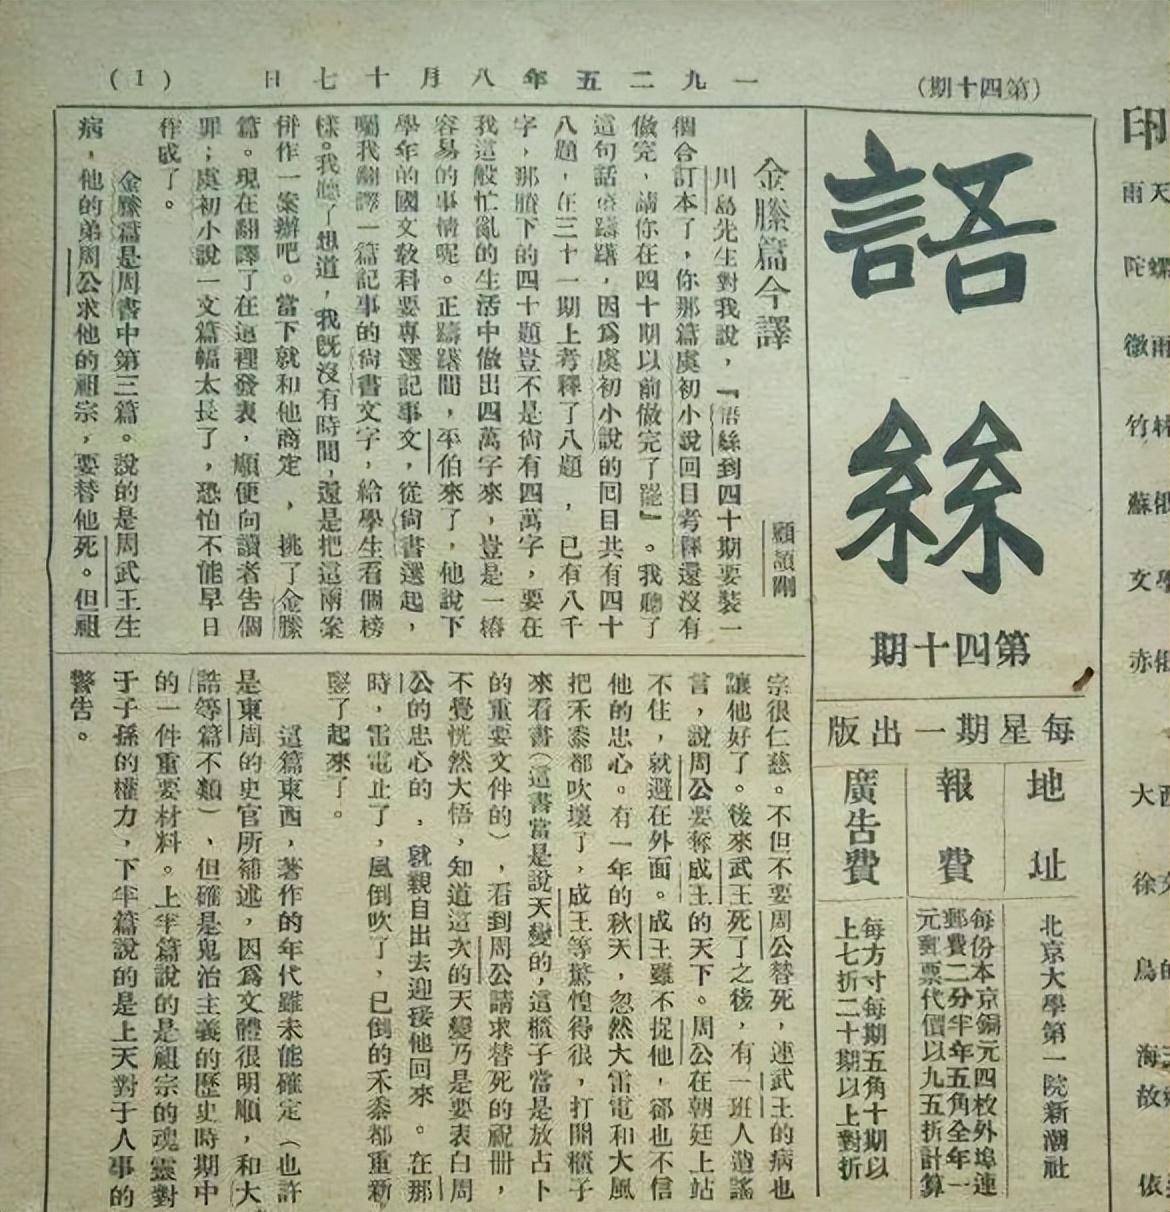 (第四十期)
一九二五年八月十七日
(1)
語絲
第四十期
每星期一出版
地址
北京大學第一院新潮社
報費
每份本京銅元四枚外埠連
郵費二分半年五角全年一
元郵票代價以九五折計算
廣告費
每方寸每期五角十期以
上七折二十期以上對折
金縢篇今譯
顧頡剛
川島先生對我說,『語絲到四十期要裝一
個合訂本了,你那篇虞初小說回目考釋還沒有
做完,請你在四十期以前做完了罷』。我聽了
這句話很躊躇,因爲虞初小說的回目共有四十
八題,在三十一期上考釋了八題,已有八千
字,那賸下的四十題豈不是尙有四萬字,要在
我這般忙亂的生活中做出四萬字來,豈是一樁
容易的事情呢。正躊躇間,平伯來了,他說下
學年的國文敎科要專選記事文,從尙書選起,
囑我翻譯一篇記事的尙書文字,給學生看個榜
樣。我聽了想道,我旣沒有時間,還是把這兩案
併作一案辦吧。當下就和他商定,挑了金縢
篇。現在翻譯了在這裡發表,順便向讀者告個
罪;虞初小說一文篇幅太長了,恐怕不能早日
作成了。
金縢篇是周書中第三篇。說的是周武王生
病,他的弟周公求他的祖宗,要替他死。但祖
宗很仁慈。不但不要周公替死,連武王的病也
讓他好了。後來武王死了之後,有一班人造謠
言,說周公要奪成王的天下。周公在朝廷上站
不住,就避在外面。成王雖不捉他,卻也不信
他的忠心。有一年的秋天,忽然大雷電和大風
把禾黍都吹壞了,成王等驚惶得很,打開櫃子
來看書(這書當是說天變的,這櫃子當是放占卜
的重要文件的),看到周公請求替死的祝冊,
不覺恍然大悟,知道這次的天變乃是要表白周
公的忠心的,就親自出去迎接他回來。在那
時,雷電止了,風倒吹了,已倒的禾黍都重新
豎了起來了。
這篇東西,著作的年代雖未能確定(也許
是東周的史官所補述,因爲文體很明順,和大
誥等篇不類),但確是鬼治主義的歷史時期中
的一件重要材料。上半篇說的是祖宗的魂靈對
于子孫的權力,下半篇說的是上天對于人事的
警告。
印